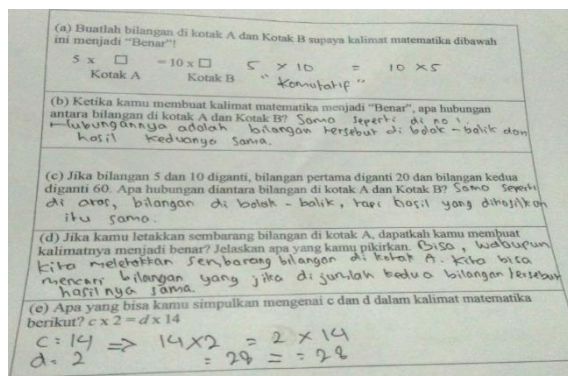 (a) Buatlah bilangan di kotak A dan Kotak B supaya kalimat matematika dibawah
ini menjadi "Benar"!
5 x □ = 10 x □ 5 x 10 = 10 x 5
Kotak A Kotak B "Komutatif"
(b) Ketika kamu membuat kalimat matematika menjadi "Benar", apa hubungan
antara bilangan di kotak A dan Kotak B? Sama seperti di no 1.
Hubungannya adalah bilangan tersebut di bolak-balik dan
hasil keduanya sama.
(c) Jika bilangan 5 dan 10 diganti, bilangan pertama diganti 20 dan bilangan kedua
diganti 60. Apa hubungan diantara bilangan di kotak A dan Kotak B? Sama seperti
di atas, bilangan di bolak-balik, tapi hasil yang dihasilkan
itu sama.
(d) Jika kamu letakkan sembarang bilangan di kotak A, dapatkah kamu membuat
kalimatnya menjadi benar? Jelaskan apa yang kamu pikirkan. Bisa, walaupun
kita meletakkan sembarang bilangan di kotak A. Kita bisa
mencari bilangan yang jika dijumlah kedua bilangan tersebut
hasilnya sama.
(e) Apa yang bisa kamu simpulkan mengenai c dan d dalam kalimat matematika
berikut? c x 2 = d x 14
c = 14 ⇒ 14 x 2 = 2 x 14
d = 2 = 28 = = 28